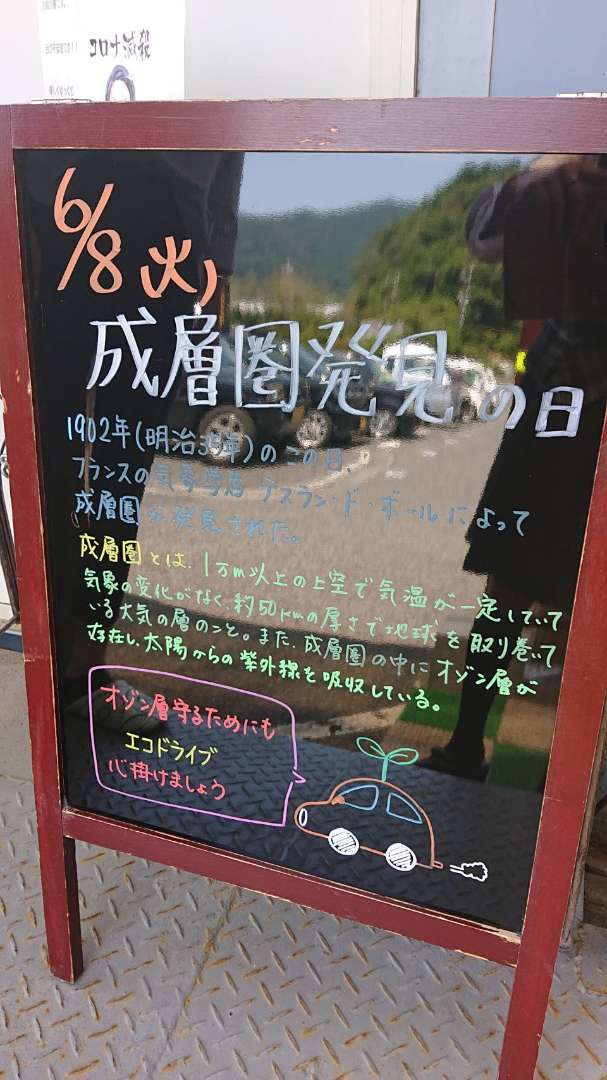 コロナ滅殺
6/8 火)
成層圏発見の日
1902年(明治35年)のこの日
フランスの気象学者 テスラン・ド・ボールによって
成層圏が発見された。
成層圏とは、1万m以上の上空で気温が一定していて
気象の変化がなく、約50kmの厚さで地球を取り巻いて
いる大気の層のこと。また、成層圏の中にオゾン層が
存在し、太陽からの紫外線を吸収している。
オゾン層守るためにも
エコドライブ
心掛けましょう